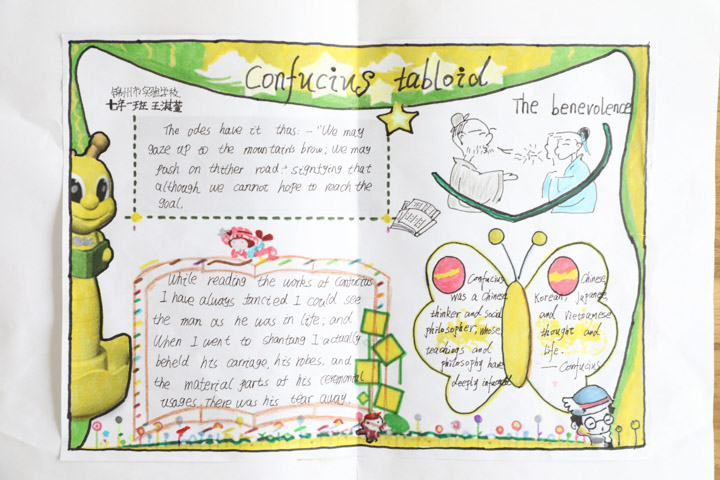 Confucius tabloid
锦州市实验学校
七年一班 王淇萱
The odes have it thus: —"We may
gaze up to the mountain's brow; we may
push on thither road:" signtying that
although we cannot hope to reach the
goal,
The benevolence
While reading the works of Confucius
I have always fancied I could see
the man as he was in life; and
When I went to shantung I actually
beheld his carriage, his robes, and
the material parts of his ceremonial
usages. There was his tear away
Confucius
was a Chinese
thinker and social
philosopher, whose
teachings and
philosophy have
deeply influenced
Chinese,
Korean, Japanese
and Vietnamese
thought and
life.
— Confucius